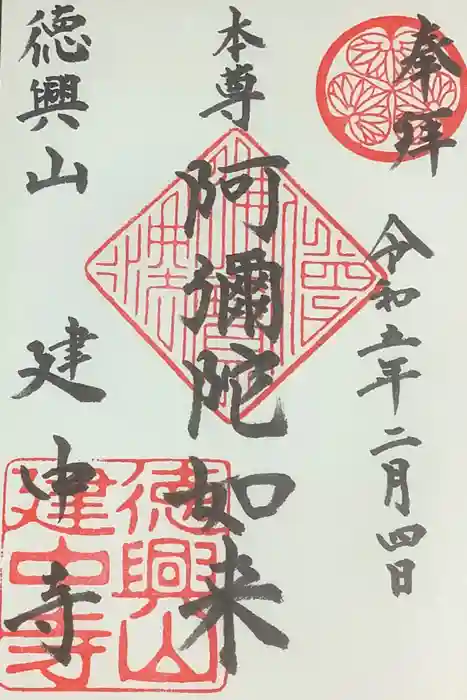 奉拜
令和五年二月四日
本尊
阿彌陀如来
德興山
建中寺
德興山
建中寺